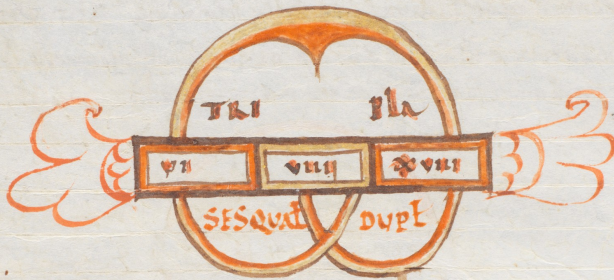 TRI pla
vi viiii xviii
SESQUAL DUPL